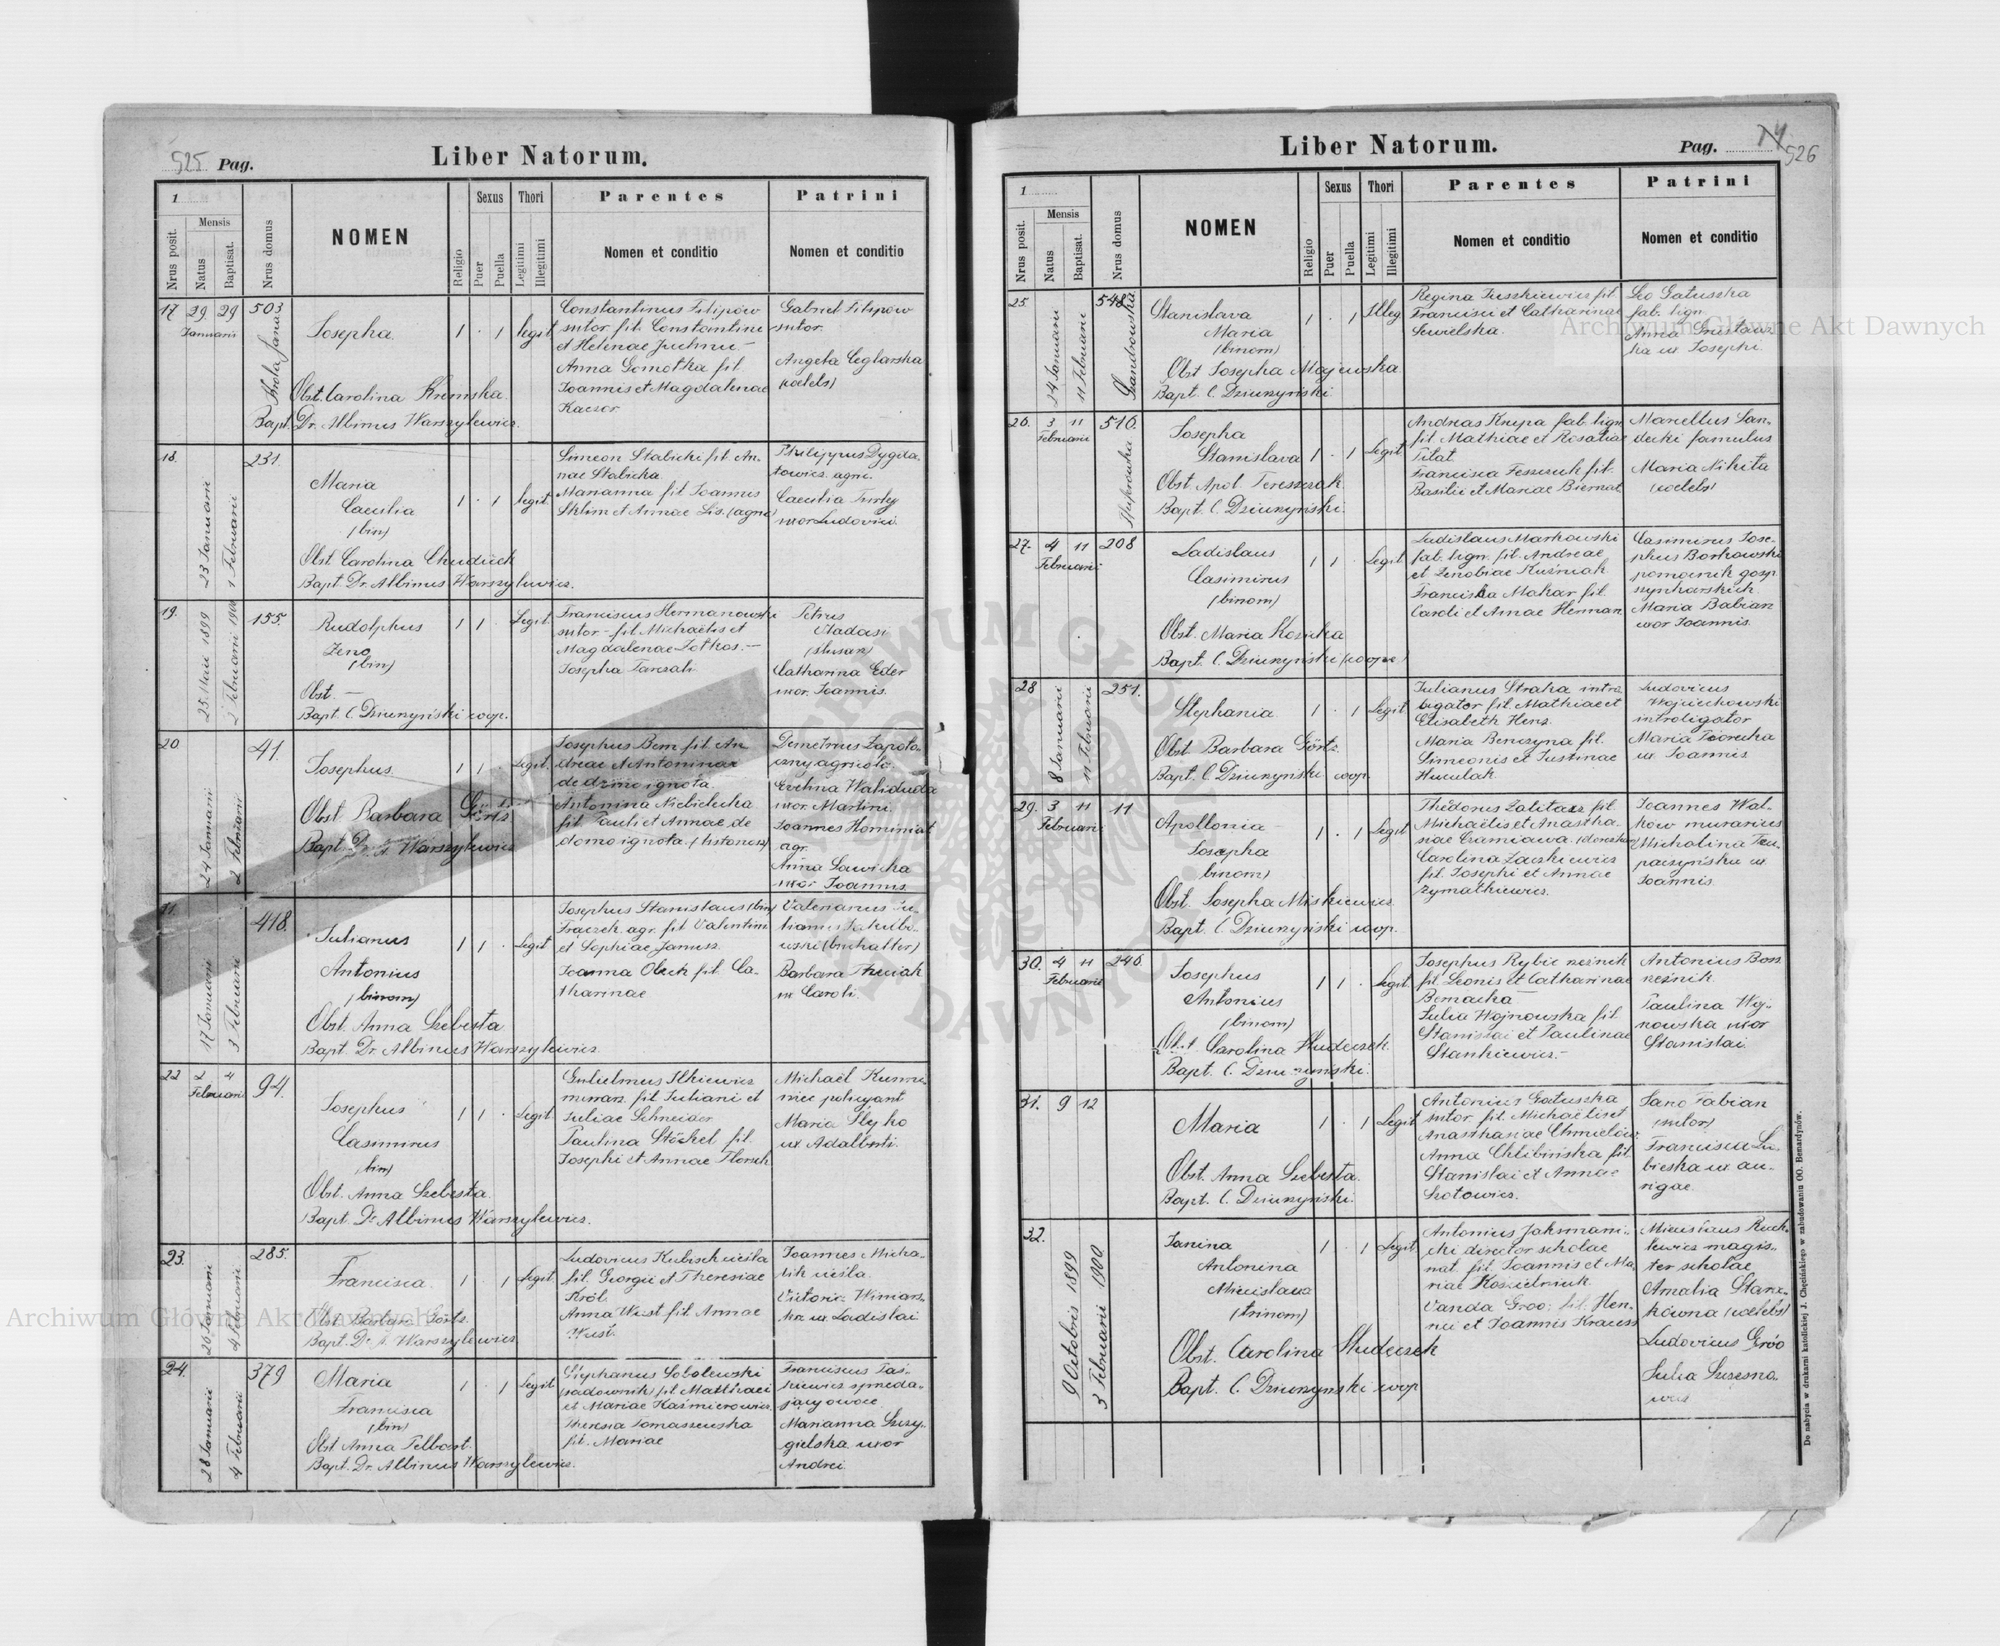 525 Pag.
Liber Natorum.
1
Nrus posit.
Mensis
Natus
Baptisat.
Nrus domus
NOMEN
Religio
Sexus
Puer
Puella
Thori
Legitimi
Illegitimi
Parentes
Nomen et conditio
Patrini
Nomen et conditio
17
29 29
Januarii
503
Josepha
1 . 1 legit
Obst. Carolina
Bapt. Dr. Albinus Warszylewicz.
Constantinus Filipow
sutor fil. Constantini
et Helenae
Anna Gomotka fil.
Joannis et Magdalenae
Kaczor
Gabriel Filipow
sutor.
Angela Ceglarska
(coelebs)
18.
23 Januarii
1 Februarii
231.
Maria
Caecilia
(bin)
1 . 1 legit
Obst. Carolina
Bapt. Dr. Albinus Warszylewicz.
Simeon Stabicki fil. An-
nae Stabicka.
Marianna fil. Joannis
et Annae Lis. (agric)
Philippus Dygda-
towicz. agri.
Caecilia Turley
uxor Ludovici.
19.
25 Maii 1899
2 Februarii 1900
155.
Rudolphus
Zeno
(bin)
1 1 . Legit.
Obst. —
Bapt. C. Dziurzyński coop.
Franciscus Hermanowski
sutor - fil. Michaëlis et
Magdalenae
Josepha
Petrus
Madasi
(slusarz)
Catharina Eder
uxor. Joannis.
20.
24 Januarii
2 Februarii
41.
Josephus.
1 1 . Legit.
Obst. Barbara Görtz.
Bapt. Dr. A. Warszylewicz
Josephus Bem fil. An-
dreae et Antoninae
de domo ignota.
Antonina Niebielecka
fil. Pauli et Annae de
domo ignota.
Demetrius Zapoto-
czny agricola.
Evelina
uxor. Martini.
Joannes Hominiat
agr.
Anna Sawicka
uxor Joannis.
21.
17 Januarii
3 Februarii
418.
Julianus
Antonius
(binom)
1 1 . Legit
Obst. Anna Szebesta
Bapt. Dr. Albinus Warszylewicz.
Josephus Stanislaus (bin)
Fraczek. agr. fil. Valentini
et Sophiae Janusz.
Joanna fil. Ca-
tharinae
Valerianus Ju-
lianus
Barbara
ux Caroli.
22
2 4
Februarii
94.
Josephus
Casimirus
(bin)
1 1 . Legit
Obst. Anna Szebesta.
Bapt. Dr. Albinus Warszylewicz.
Gulielmus Ilkiewicz
murarz. fil. Juliani et
Juliae Schneider
Paulina Stöckel fil.
Josephi et Annae
Michaël
policyant
Maria
ux Adalberti.
23.
26 Januarii
4 Februarii
285.
Francisca.
1 . 1 Legit.
Obst. Barbara Görtz.
Bapt. Dr. A. Warszylewicz.
Ludovicus Kubisch cieśla
fil. Georgii et Theresiae
Król.
Anna Wüst fil. Annae
Wüst.
Joannes Micha-
lik cieśla.
Victoria Winiars-
ka ux. Ladislai
24.
28 Januarii
4 Februarii
379
Maria
Francisca
(bin)
1 . 1 Legit
Obst. Anna
Bapt. Dr. Albinus Warszylewicz.
Stephanus Sobolewski
(sadownik) fil. Matthaei
et Mariae Kaźmierowicz.
Theresia Tomaszewska
fil. Mariae
Franciscus Taś-
kiewicz sprzeda-
jący owoce
Marianna Szczy-
gielska uxor
Andrei.
Liber Natorum.
Pag. 526
1
Nrus posit.
Mensis
Natus
Baptisat.
Nrus domus
NOMEN
Religio
Sexus
Puer
Puella
Thori
Legitimi
Illegitimi
Parentes
Nomen et conditio
Patrini
Nomen et conditio
25.
11 Februarii
548
Stanislava
Maria
(binom)
1 . 1 Illeg
Obst Josepha Majewska
Bapt. C. Dziurzyński.
Regina Juszkiewicz fil.
Francisci et Catharinae
Leo Gatuszka
fab. lign.
Anna
ka ux. Josephi.
26.
3 11
Februarii
510.
Josepha
Stanislava
1 . 1 Legit
Obst. Apol. Tereszczak
Bapt. C. Dziurzyński.
Andreas Krupa fab. lign.
fil. Mathiae et Rosaliae
Pilat.
Francisca fil.
Basilii et Mariae Biernat
Marcellus San-
decki famulus
Maria Nikita
(coelebs)
27.
4 11
Februarii
208
Ladislaus
Casimirus
(binom)
1 1 . Legit.
Obst. Maria Kosicka
Bapt. C. Dziurzyński (coop.)
Ladislaus Markowski
fab. lign. fil. Andreae
et Zenobiae Kuśniak
Francisca Makar fil.
Caroli et Annae Herman
Casimirus Jose-
phus Borkowski
pomocnik gosp
szynkarskich
Maria Babian
uxor Joannis.
28
8 Januarii
11 Februarii
251.
Stephania
1 . 1 Legit
Obst. Barbara Görtz
Bapt. C. Dziurzyński coop.
Julianus Straka intro-
ligator fil. Mathiae et
Elisabeth Henz.
Maria Benczyna fil.
Simeonis et Justinae
Huculak
Ludovicus
Wojciechowski
introligator
Maria
ux Joannis
29.
3 11
Februarii
11
Apollonia
Josepha
binom)
1 . 1 Legit
Obst. Josepha Miskiewicz
Bapt. C. Dziurzyński coop.
Theodorus fil.
Michaëlis et Anastha-
siae
Carolina Zacskiewicz
fil. Josephi et Annae
Joannes Wal-
kow murarius
Michalina
ux.
Joannis
30.
4 11
Februarii
246.
Josephus
Antonius
(binom)
1 1 . Legit.
Obst. Carolina Hudeczek.
Bapt. C. Dziurzyński.
Josephus Rybic rzeźnik
fil. Leonis et Catharinae
Bernacka
Julia Wojnowska fil.
Stanislai et Paulinae
Stankiewicz.-
Antonius Boss
rzeźnik.
Paulina Woj-
nowska uxor
Stanislai.
31.
9 12
Maria
1 . 1 Legit
Obst. Anna Szebesta.
Bapt. C. Dziurzyński.
Antonius Gatuszka
sutor. fil. Michaëlis et
Anasthasiae
Anna Chlibińska fil.
Stanislai et Annae
Szotowicz.
Fabian
(sutor)
Francisca Lu-
bieska ux. au-
rigae.
32.
9 Octobris 1899
3 Februarii 1900
Janina
Antonina
Miecislava
(trinom)
1 . 1 Legit.
Obst. Carolina Hudeczek
Bapt. C. Dziurzyński coop
Antonius
director scholae
nat. fil. Joannis et Ma-
riae
Vanda Groo: fil. Hen-
rici et Joannis Krauss
Ruch-
lewicz magis-
ter scholae
Amalia
(coelebs)
Ludovicus Gróo
Julia
Do nabycia w drukarni katolickiej J. Chęcińskiego w zabudowaniu OO. Bernardynów.
Archiwum Główne Akt Dawnych
Archiwum Główne Akt Dawnych
ARCHIWUM GŁÓWNE AKT DAWNYCH